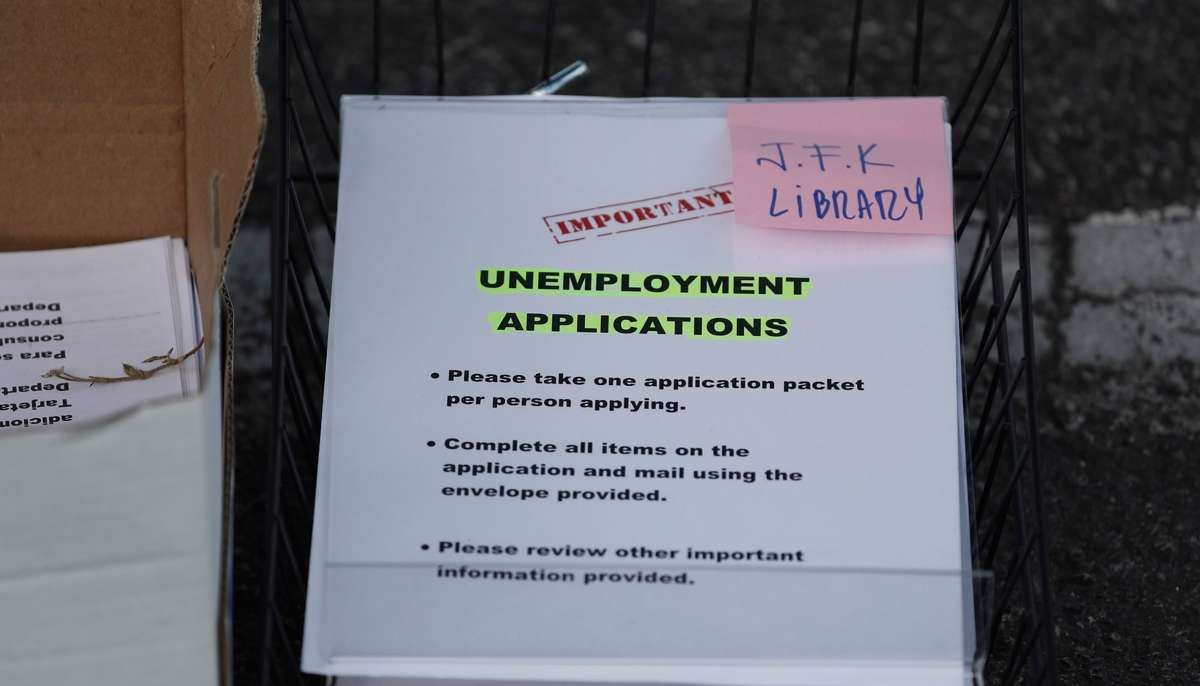 J.F.K
LiBRARY
IMPORTANT
UNEMPLOYMENT
APPLICATIONS
• Please take one application packet
per person applying.
• Complete all items on the
application and mail using the
envelope provided.
• Please review other important
information provided.
adicion
Tarjeta
Depart
Para s
consul
propor
Depar